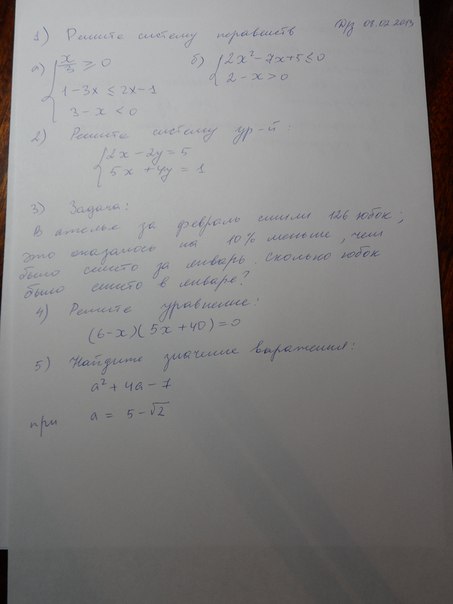 1) Решите систему неравенств Д/з 08.02.2013
а) { x/3 ≥ 0 б) { 2x² - 7x + 5 ≤ 0
1 - 3x ≤ 2x - 1 2 - x > 0
3 - x < 0
2) Решите систему ур-й:
{ 2x - 2y = 5
5x + 4y = 1
3) Задача:
В ателье за февраль сшили 126 юбок;
это оказалось на 10% меньше, чем
было сшито за январь. Сколько юбок
было сшито в январе?
4) Решите уравнение:
(6 - x)(5x + 40) = 0
5) Найдите значение выражения:
a² + 4a - 7
при a = 5 - √2